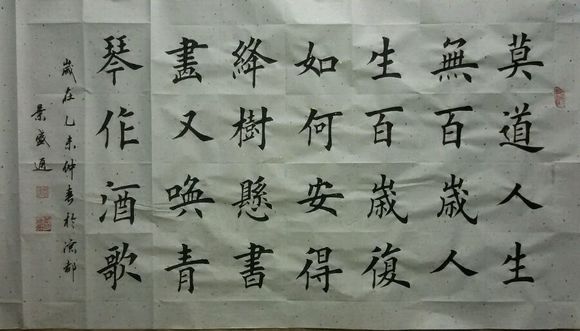 莫道人生
無百歲人
生百歲復
如何安得
絳樹懸書
畫又喚青
琴作酒歌
歲在乙未仲春於都
景盛